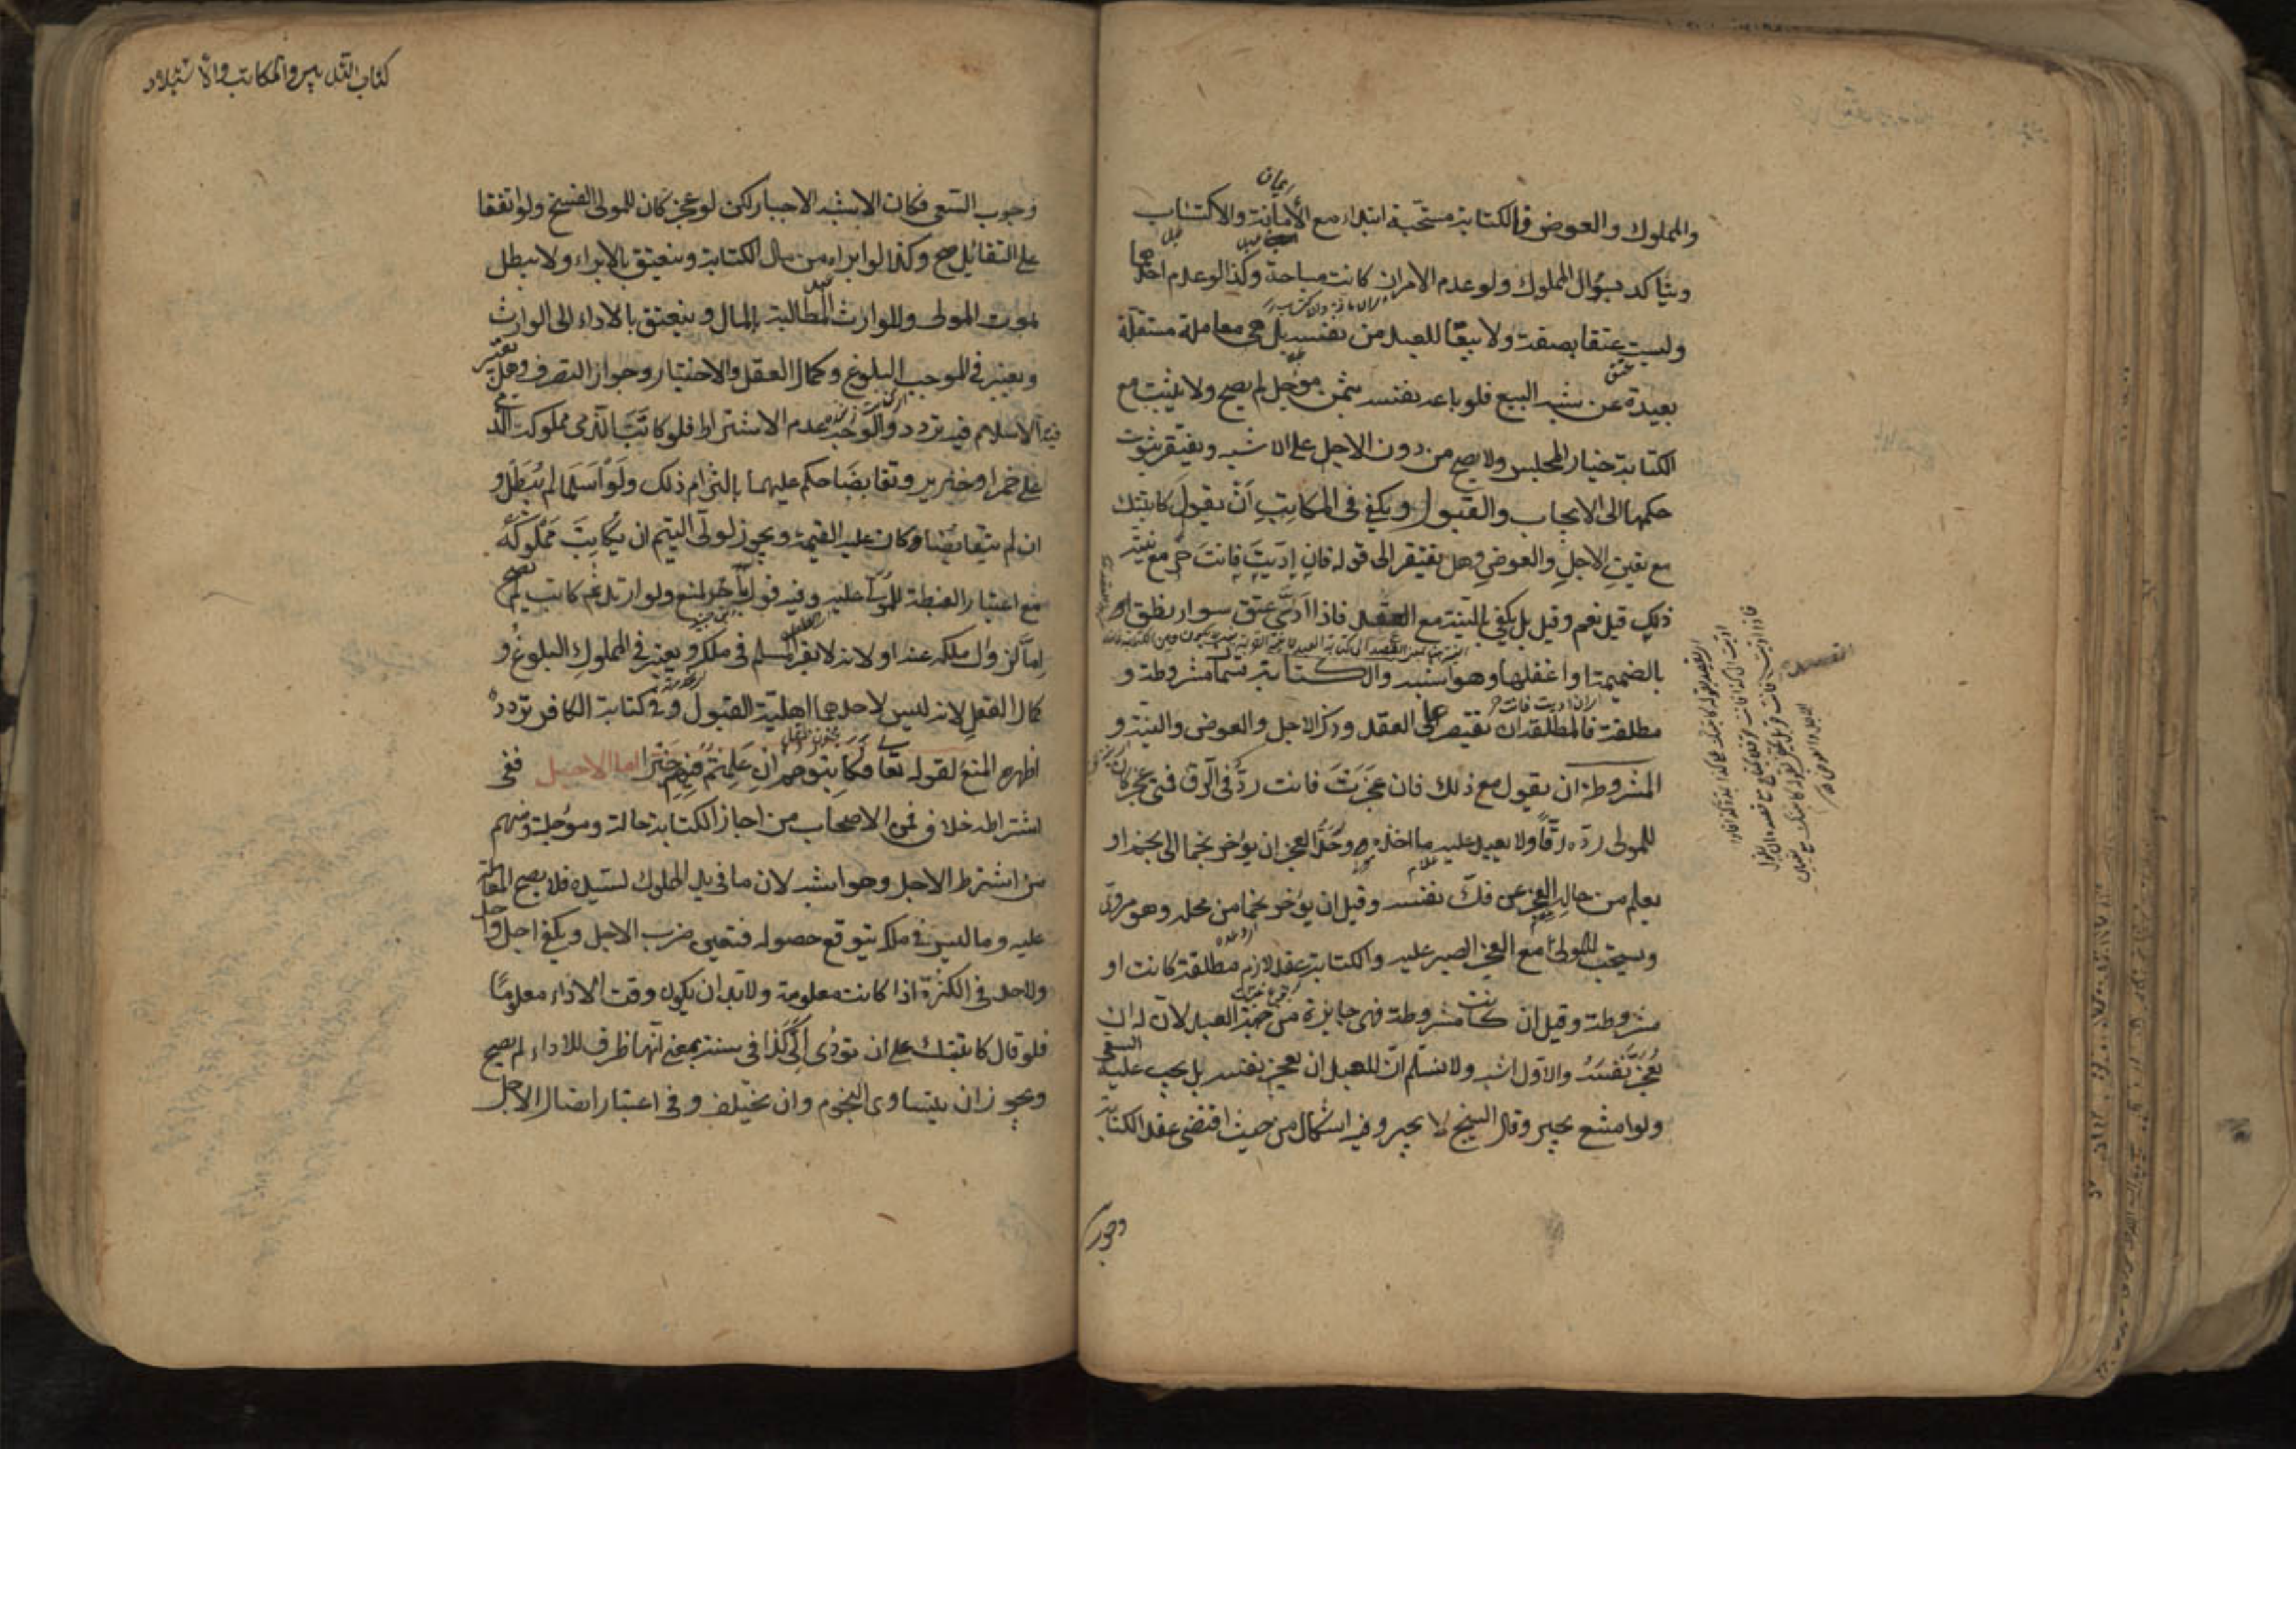 والمملوك والعوض والكتابة مستحبة ابتداء مع الأمانة والاكتساب
ويتأكد بسؤال المملوك ولو عدم الامران كانت مباحة وكذا لو عدم احدهما
وليست عتقا بصفة ولا بيعا للعبد من نفسه بل هي معاملة مستقلة
بعيدة عن شبه البيع فلو باعه نفسه بثمن مؤجل لم يصح ولا يثبت مع
الكتابة خيار المجلس ولا يصح من دون الاجل على الاشبه ويفتقر ثبوت
حكمها الى الايجاب والقبول ويكفي في المكاتب أن يقول كاتبتك
مع تعيين الاجل والعوض وهل يفتقر الى قوله فان اديت فانت حر مع نية
ذلك قيل نعم وقيل بل يكفي النية مع العقد فاذا ادى عتق سواء نطق
بالضميمة او اغفلها وهو اشبه والكتابة قسمان مشروطة و
مطلقة فالمطلقة ان يقتصر على العقد وذكر الاجل والعوض والنية و
المشروطة ان يقول مع ذلك فان عجزت فانت رد في الرق فمتى عجز كان
للمولى رده رقا ولا يعيد عليه ما اخذه وحد العجز ان يؤخر نجما الى نجم او
يعلم من حاله العجز عن فك نفسه وقيل ان يؤخر نجما من محله وهو مروي
ويستحب للمولى مع العجز الصبر عليه والكتابة عقد لازم مطلقة كانت او
مشروطة وقيل ان كانت مشروطة فهي جايزة من جهة العبد لان له ان
يعجز نفسه والاول اشبه ولا نسلم ان للعبد ان يعجز نفسه بل يجب عليه السعي
ولو امتنع يجبر وقال الشيخ لا يجبر وفيه اشكال من حيث اقتضى عقد الكتابة
وجوب
كتاب التدبير والمكاتبة والاستيلاد
وجوب السعي فكان الاشبه الاجبار لكن لو عجز كان للمولى الفسخ ولو اتفقا
على التقائل صح وكذا لو ابراه من مال الكتابة وينعتق بالابراء ولا يبطل
بموت المولى وللوارث المطالبة بالمال وينعتق بالاداء الى الوارث
ويعتبر في الموجب البلوغ وكمال العقل والاختيار وجواز التصرف وهل يعتبر
فيه الاسلام فيه تردد والوجه عدم الاشتراط فلو كاتب الذمي مملوكه
على خمر او خنزير وتقابضا حكم عليهما بالتزام ذلك ولو اسلما لم يبطل و
ان لم يتقابضا وكان عليه القيمة ويجوز لولي اليتيم ان يكاتب مملوكه
مع اعتبار الغبطة للمولى عليه وفيه قول آخر بالمنع ولو ارتد ثم كاتب لم يصح
اما لزوال ملكه عنه او لانه لا يقر المسلم في ملكه ويعتبر في المملوك البلوغ و
كمال العقل لانه ليس لاحدهما اهلية القبول وفي كتابة الكافر تردد
اظهره المنع لقوله تعالى فكاتبوهم ان علمتم فيهم خيرا اما الاجل ففي
اشتراطه خلاف فمن الاصحاب من اجاز الكتابة حالة ومؤجلة ومنهم
من اشترط الاجل وهو اشبه لان ما في يد المملوك لسيده فلا يصح المعاملة
عليه وما ليس في ملكه يتوقع حصوله فتعين ضرب الاجل ويكفي اجل واحد
ولا حد في الكثرة اذا كانت معلومة ولا بد ان يكون وقت الاداء معلوما
فلو قال كاتبتك على ان تؤدي الي كذا في سنة بمعنى انها ظرف للاداء لم يصح
ويجوز ان يتساوى النجوم وان يختلف وفي اعتبار اتصال الاجل